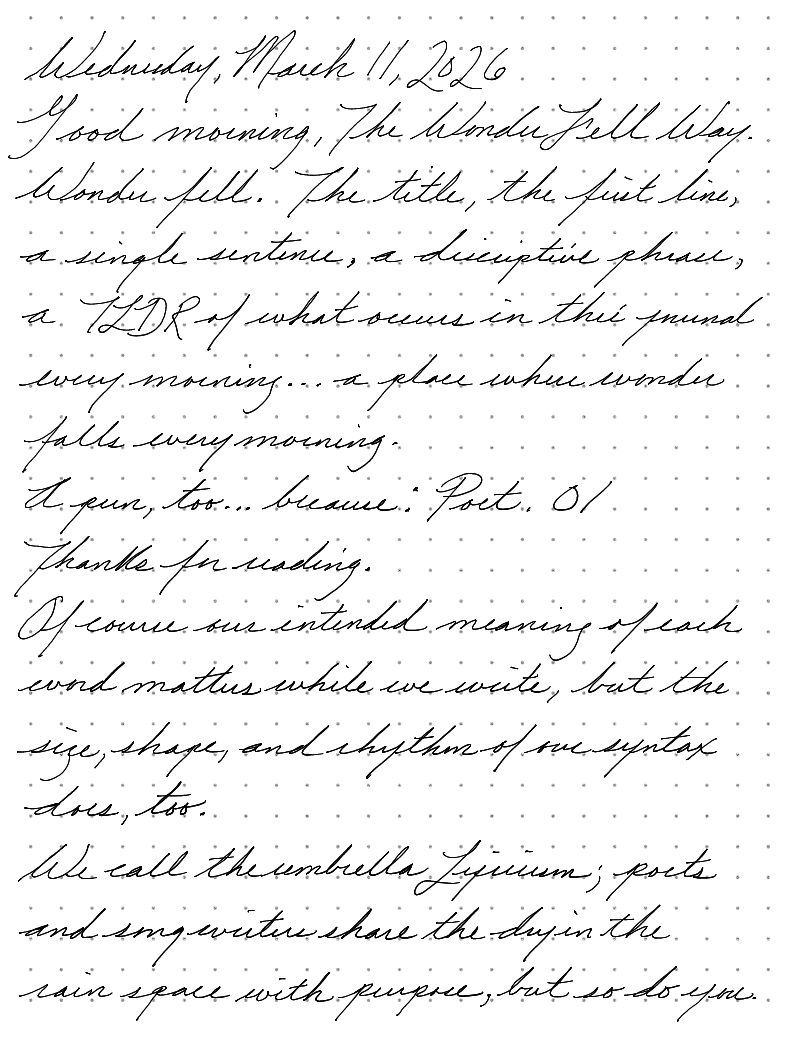 Wednesday, March 11, 2026
Good morning, The Wonder Fell Way.
Wonder fell. The title, the first line,
a single sentence, a descriptive phrase,
a TLDR of what occurs in this journal
every morning... a place where wonder
falls every morning.
A pun, too... because: Poet. 01
Thanks for reading.
Of course our intended meaning of each
word matters while we write, but the
size, shape, and rhythm of our syntax
does, too.
We call the umbrella Lyricism; poets
and songwriters share the dry in the
rain space with purpose, but so do you.